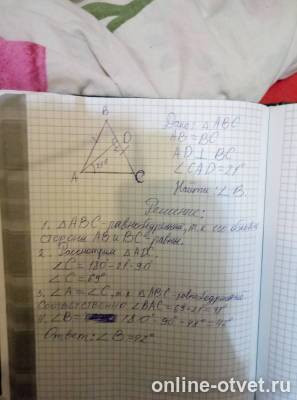 B
D
A
21°
C
Дано: △ABC
AB = BC
AD ⊥ BC
∠CAD = 21°
Найти: ∠B.
Решение:
1. △ABC - равнобедренный, т.к. его
стороны AB и BC - равны.
2. Рассмотрим △ADC
∠C = 180 - 21 - 90
∠C = 69°
3. ∠A = ∠C, т.к. △ABC - равнобедренный
Соответственно ∠BAC =
4. ∠B =
Ответ: ∠B = 42°
online-otvet.ru